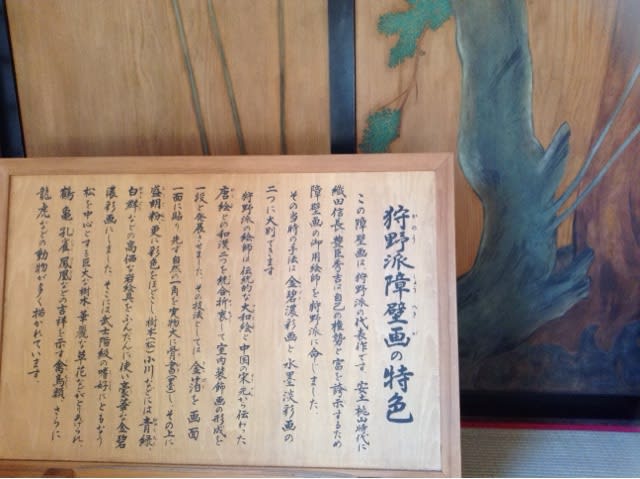 狩野派障壁画の特色
かのうはしょうへきが
この障壁画は狩野派の代表作です。安土桃山時代に
織田信長、豊臣秀吉は自己の権勢と富を誇示するため
障壁画の御用絵師を狩野派に命じました。
その当時の手法は金碧濃彩画と水墨淡彩画の
二つに大別できます
狩野派の絵師は伝統的な大和絵と中国の宋元から伝わった
唐絵との和漢二つを統合折衷して室内装飾画の形成を
一段と発展させました。その技法としては金箔を画面
一面に貼り、先ず自然の一角を実物大に骨書(墨)し、その上に
盛胡粉、更に彩色をほどこし樹木(松)小川などには青緑、
白群などの高価な岩絵具をふんだんに使い豪華な金碧
濃彩画にしました。そこには武士階級の嗜好にともなう
松を中心とする巨大な樹木、華麗な草花などがとりあげられ
鶴、亀、孔雀、鳳凰などの吉祥を示す禽鳥類、さらに
龍虎などの動物が多く描かれています